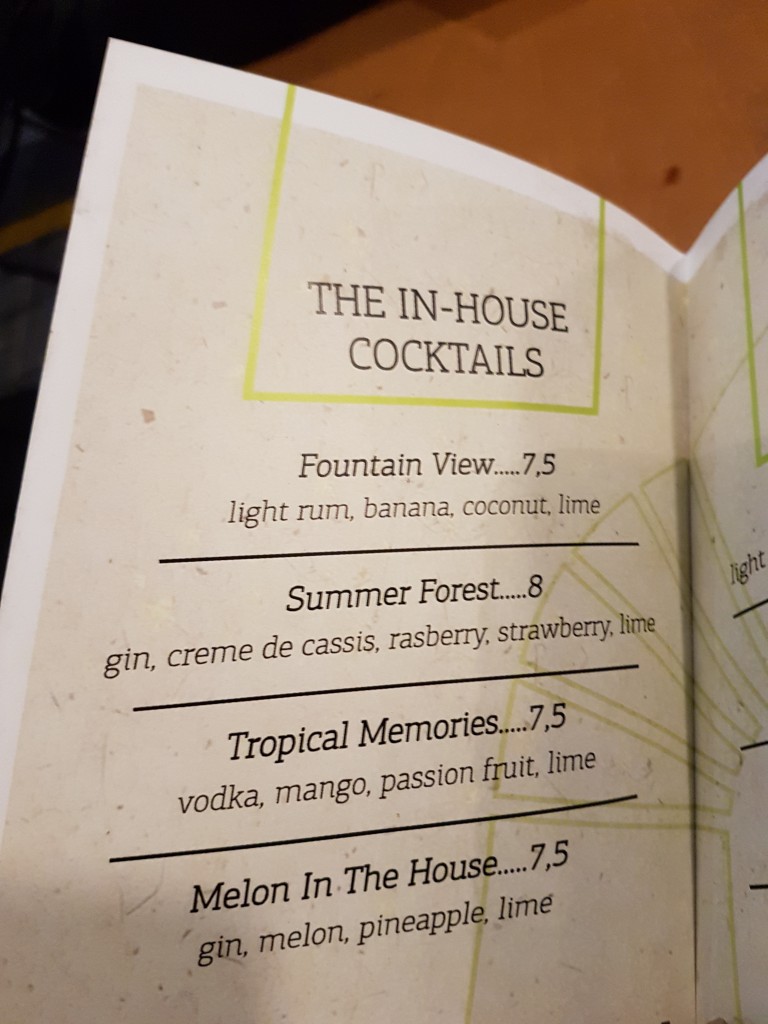 THE IN-HOUSE
COCKTAILS
Fountain View.....7,5
light rum, banana, coconut, lime
Summer Forest.....8
gin, creme de cassis, rasberry, strawberry, lime
Tropical Memories.....7,5
vodka, mango, passion fruit, lime
Melon In The House.....7,5
gin, melon, pineapple, lime
light